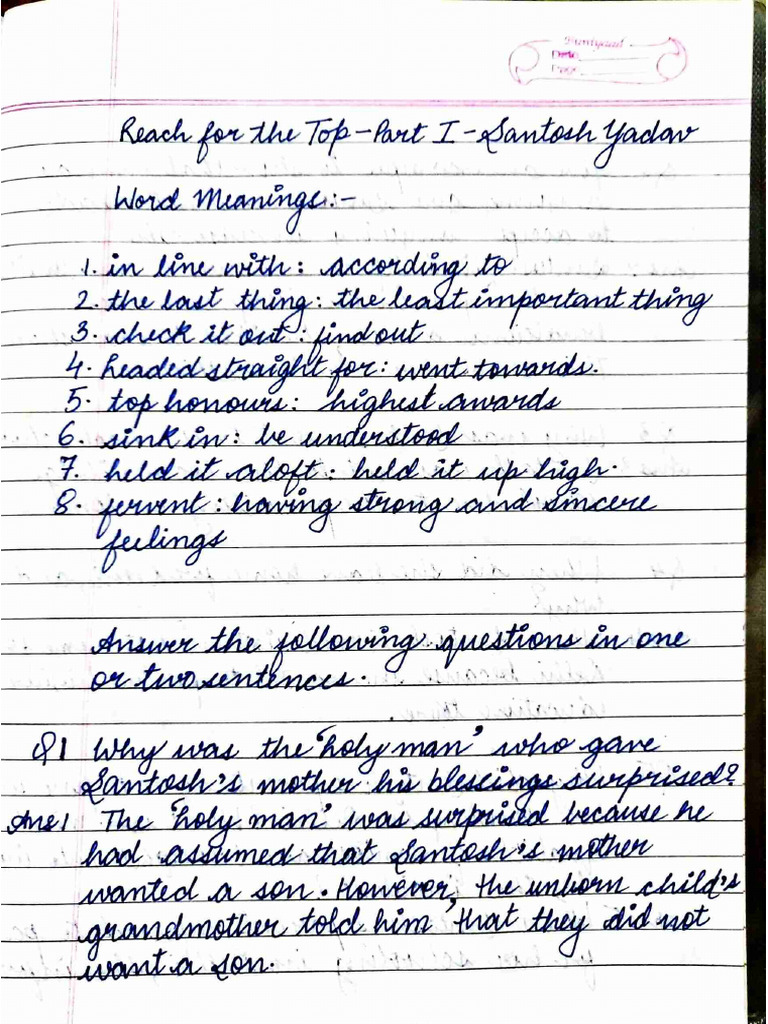 Date
Page
Reach for the Top - Part I - Santosh Yadav
Word Meanings:-
1. in line with: according to
2. the last thing: the least important thing
3. check it out: find out
4. headed straight for: went towards.
5. top honours: highest awards
6. sink in: be understood
7. held it aloft: held it up high.
8. fervent: having strong and sincere
feelings
Answer the following questions in one
or two sentences.
Q1 Why was the 'holy man' who gave
Santosh's mother his blessings surprised?
Ans1 The 'holy man' was surprised because he
had assumed that Santosh's mother
wanted a son. However, the unborn child's
grandmother told him that they did not
want a son.